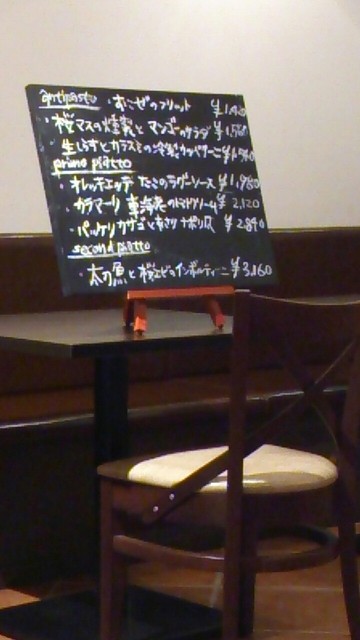 antipasto ・おこぜのフリット
・桜マスの燻製とマンゴーのサラダ
・生しらすとカラスミの冷製カッペリーニ
primo piatto
・オレッキエッテ たこのラグーソース ¥1,980
・カラマーリ 車海老のトマトクリーム ¥2,120
・パッケリ カサゴとあさり ナポリ風 ¥2,840
second piatto
・太刀魚と桜エビのインボルティーニ ¥3,160